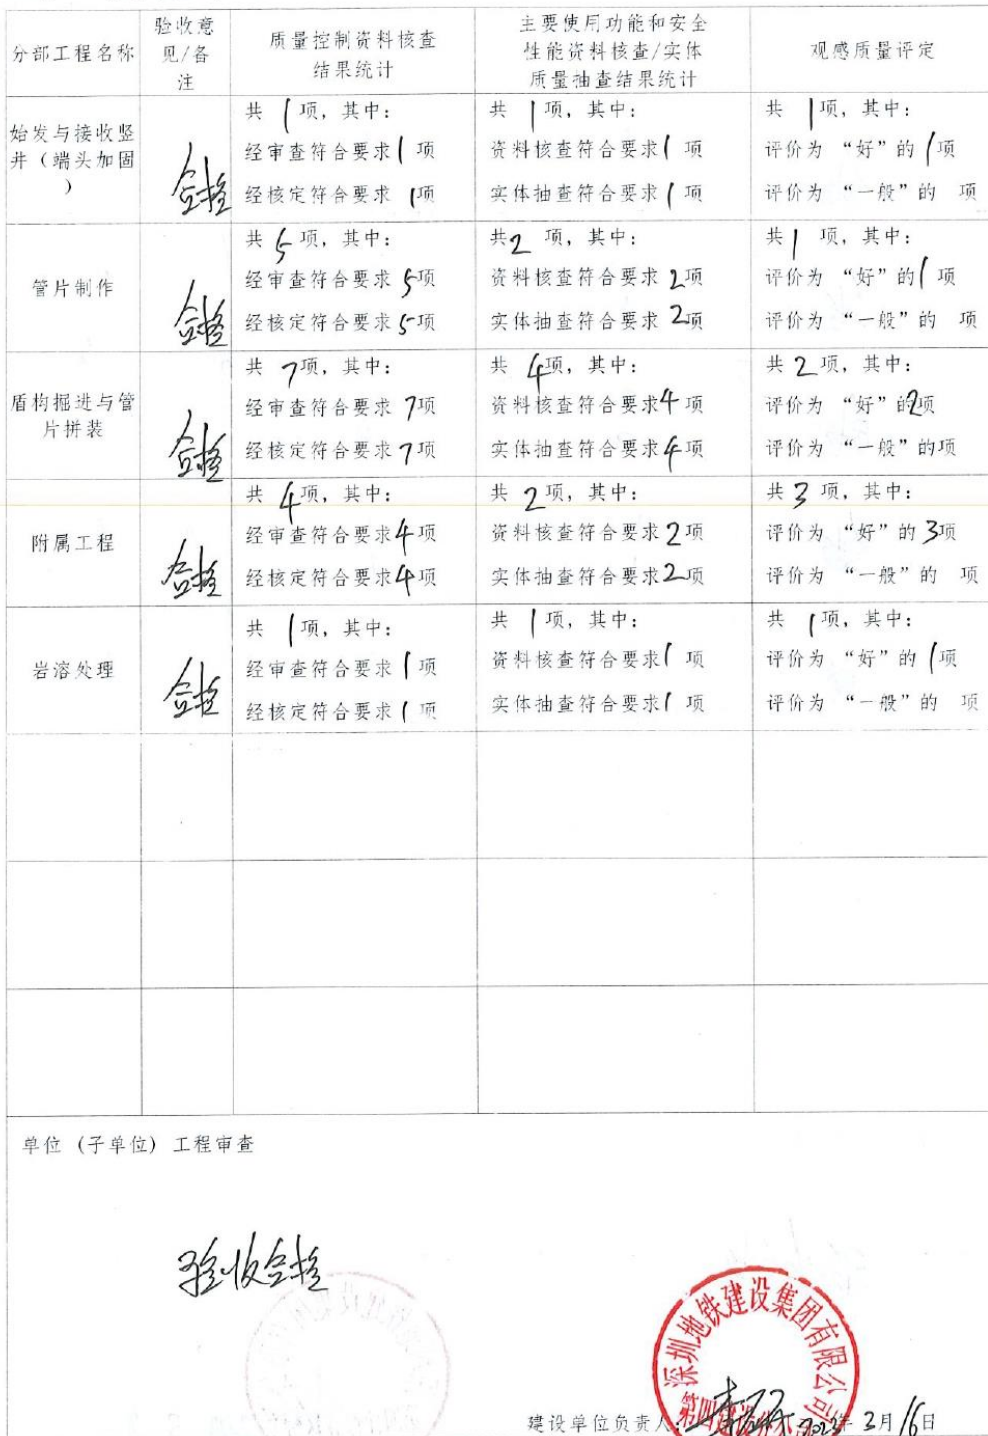 分部工程名称
验收意
见/备
注
质量控制资料核查
结果统计
主要使用功能和安全
性能资料核查/实体
质量抽查结果统计
观感质量评定
始发与接收竖
井（端头加固
）
合格
共 1项，其中：
经审查符合要求1 项
经核定符合要求 1项
共 1项，其中：
资料核查符合要求1 项
实体抽查符合要求1 项
共 1项，其中：
评价为 “好”的 1项
评价为 “一般”的 项
管片制作
合格
共 5 项，其中：
经审查符合要求 5项
经核定符合要求 5项
共2 项，其中：
资料核查符合要求 2项
实体抽查符合要求 2项
共1 项，其中：
评价为 “好”的1 项
评价为 “一般”的 项
盾构掘进与管
片拼装
合格
共 7项，其中：
经审查符合要求 7项
经核定符合要求 7项
共 4项，其中：
资料核查符合要求4 项
实体抽查符合要求4 项
共 2 项，其中：
评价为 “好”的2项
评价为 “一般”的项
附属工程
合格
共 4项，其中：
经审查符合要求4 项
经核定符合要求4 项
共 2 项，其中：
资料核查符合要求2 项
实体抽查符合要求2 项
共 3 项，其中：
评价为 “好”的 3项
评价为 “一般”的 项
岩溶处理
合格
共 1项，其中：
经审查符合要求 1 项
经核定符合要求 1 项
共 1项，其中：
资料核查符合要求1 项
实体抽查符合要求1 项
共 1项，其中：
评价为 “好”的 1项
评价为 “一般”的 项
单位（子单位）工程审查
验收合格
深圳地铁建设集团有限公司
建设单位负责人： 年 3月 16日